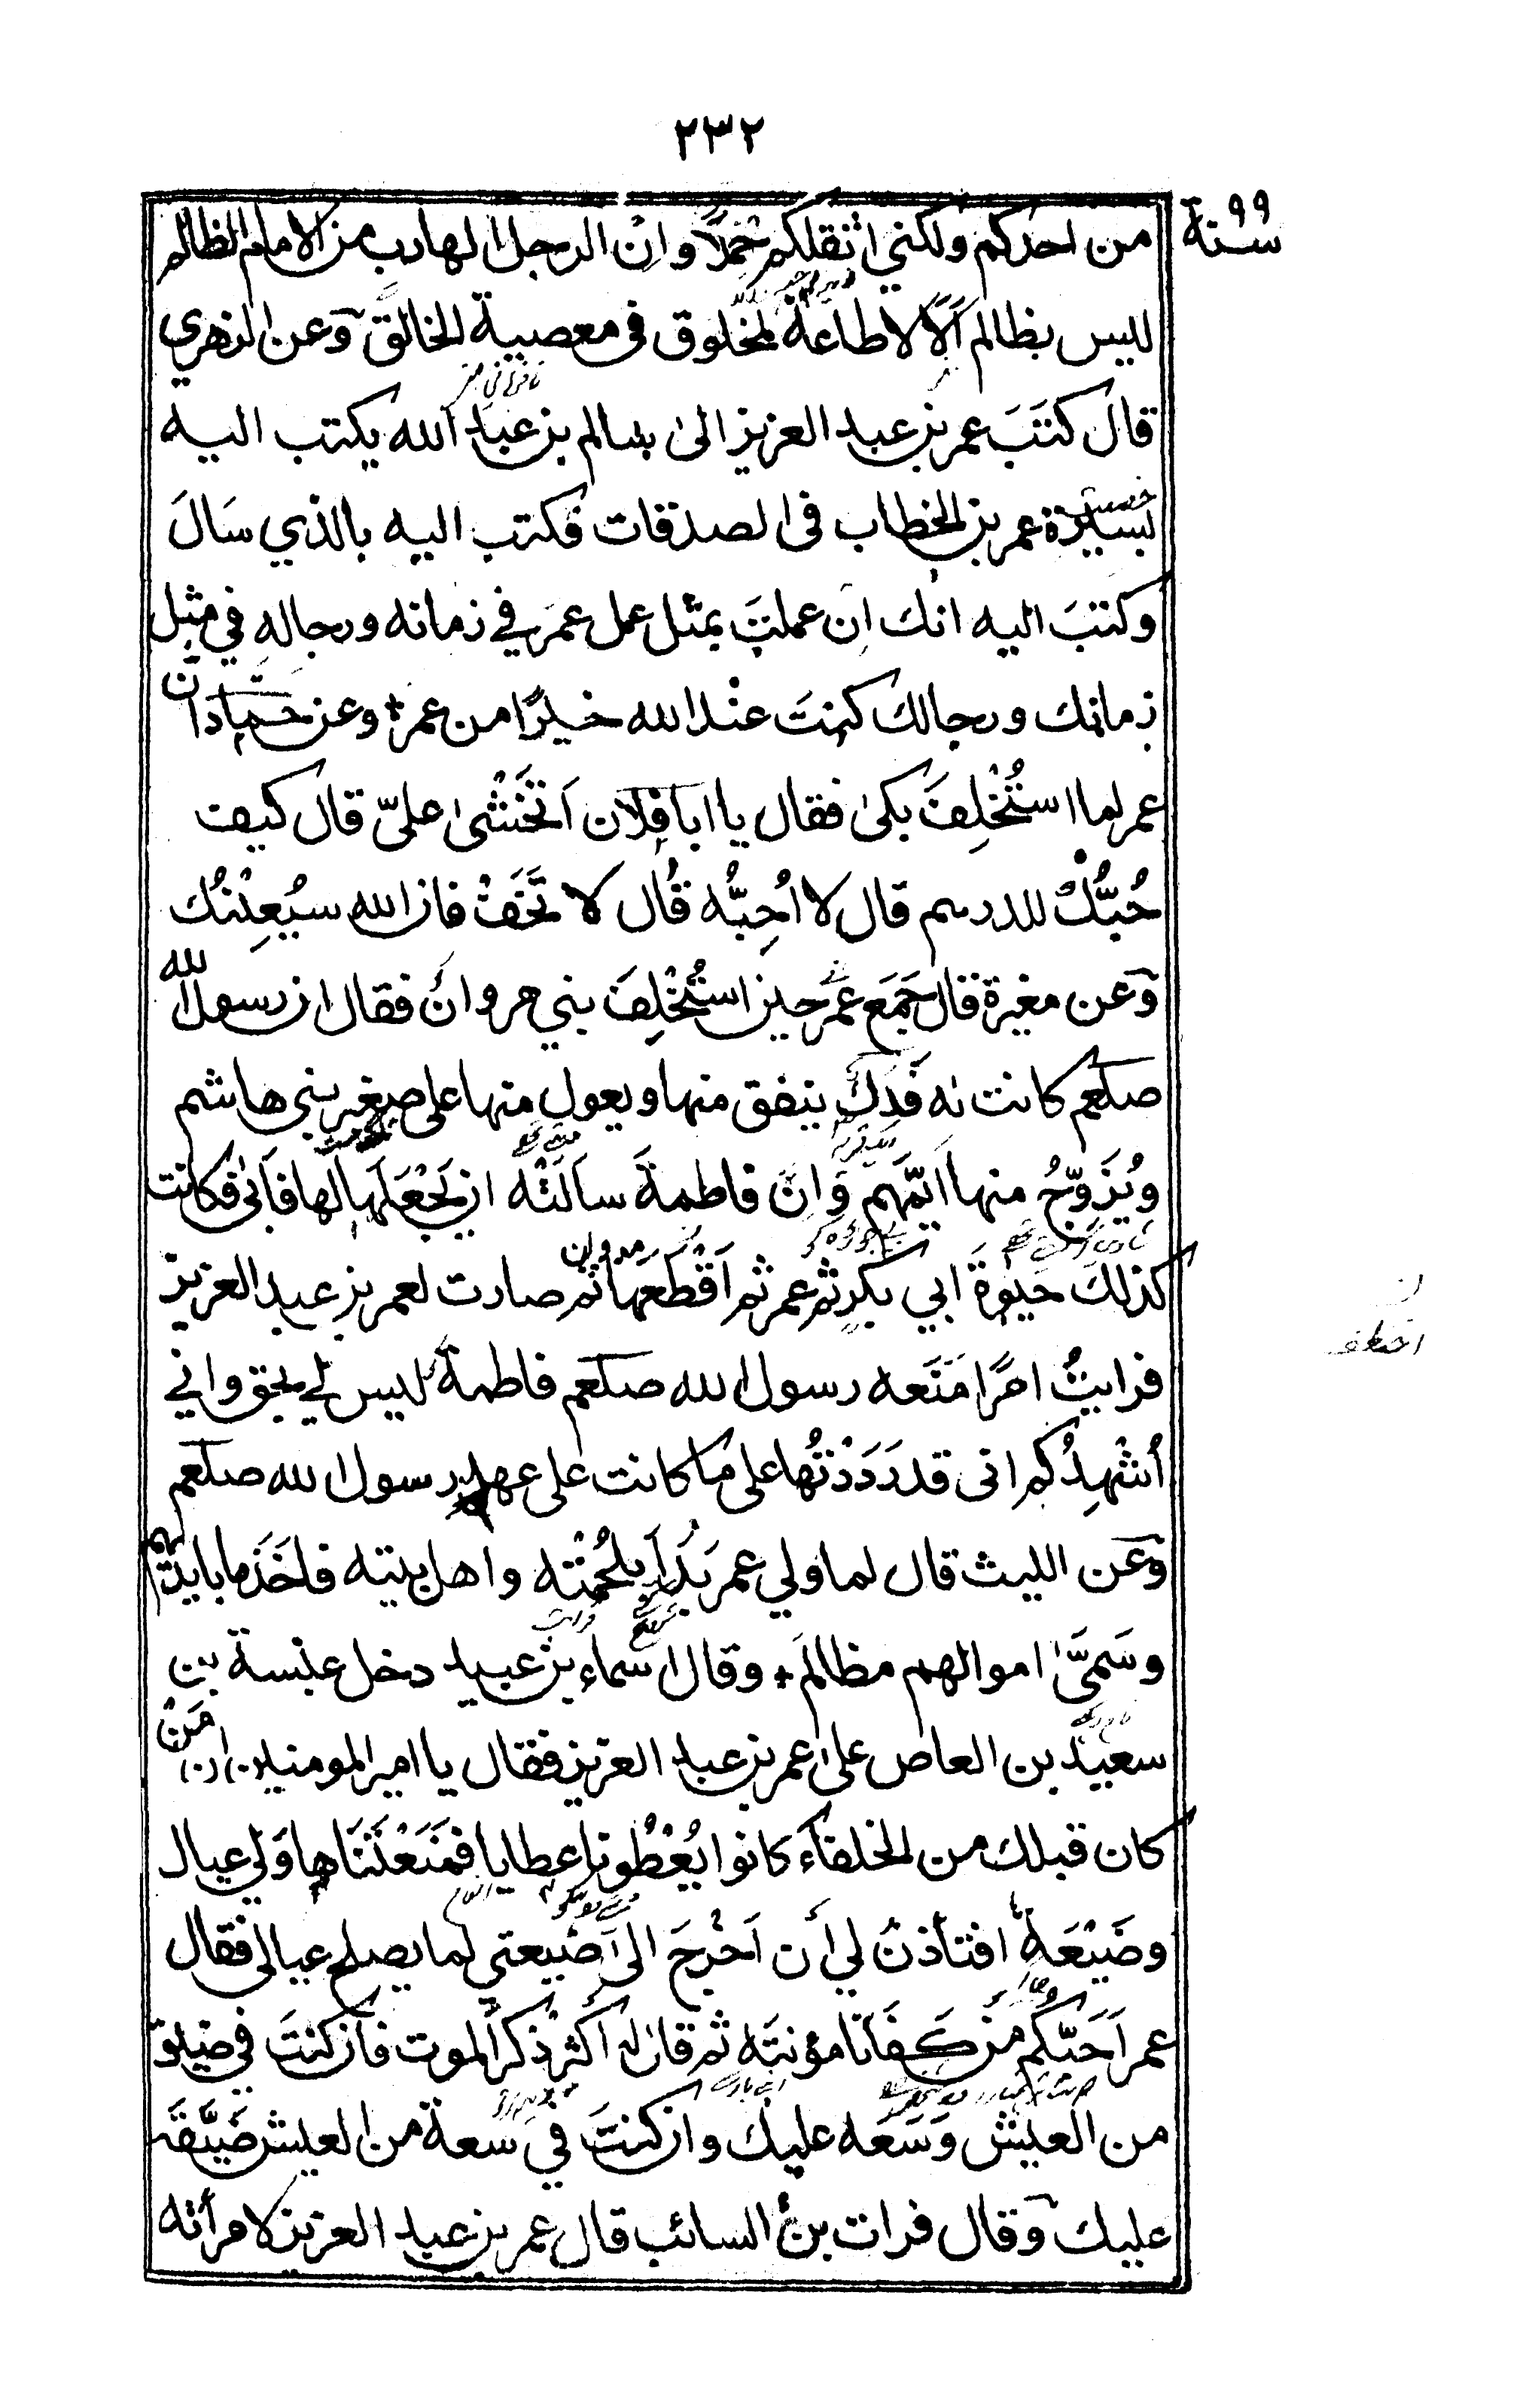 ٢٣٢
سنة ٩٩
من احدكم ولكني اثقلكم حملًا وان الرجل الهارب من الامام الظالم
ليس بظالم اَلَا لا طاعة لمخلوق فى معصية الخالق وعن الزهري
قال كتَبَ عمر بن عبد العزيز الىٰ سالم بن عبد الله يكتب اليه
بسيرة عمر بن الخطاب فى الصدقات فكتب اليه بالذي سَالَ
وكتبَ اليه انك ان عملتَ بمثل عمل عمرَ في زمانه ورجالهِ في مثل
زمانك ورجالك كنتَ عنْد الله خيرًا من عمر + وعن حماد انَّ
عمر لما استُخْلِفَ بكىٰ فقال يا ابا فلان اَتَخْشىٰ عليّ قال كيف
حُبُّكَ للدرهم قال لا اُحِبُّه قال لا تَخَفْ فان الله سيُعِيْنُك
وعن مغيرة قال جَمَع عمر حين استُخْلِفَ بني مروان فقال ان رسول الله
صلعم كانت له فَدك ينفق منها ويعول منها على صغير بني هاشم
ويُزَوّجُ منها ايّمهم وَانّ فاطمةَ سالَتْه ان يَجْعَلَها لها فاَبىٰ فكانت
كذلك حَيٰوةَ ابي بكر ثم عمر ثم اَقْطَعَها مروان ثم صارت لعمر بن عبد العزيز
فرايتُ امرًا مَنَعَه رسول الله صلعم فاطمةَ ليس لي بحق واني
اُشْهِدُكم انى قد رَدَدْتُها على ما كانت على عهد رسول الله صلعم
وعن الليث قال لما ولي عمر بَدَاَ بلُحْمَتِه واهل بيته فاخَذ ما بايديهم
وسَمىّٰ اموالهم مظالمَ + وقال اسماء بن عبيد دخل عنبسة بن
سعيد بن العاص علىٰ عمر بن عبد العزيز فقال يا امير المومنين ان مَنْ
كان قبلك من الخلفاء كانوا يُعْطُونا عطايا فمَنَعْتَنَاها وَلي عيال
وضَيْعَة افتأذن لي أن اَخْرجَ الىٰ ضيعتي لما يصلح عيالى فقال
عمر اَحَبّكم مَنْ كَفَانا مؤنتَه ثم قال له اَكْثِرْ ذكرَ الموت فان كنتَ في ضيق
من العيش وَسَّعَه عليك وان كنتَ في سعة من العيش ضَيَّقَه
عليك وقال فرات بن السائب قال عمر بن عبد العزيز لامرأته